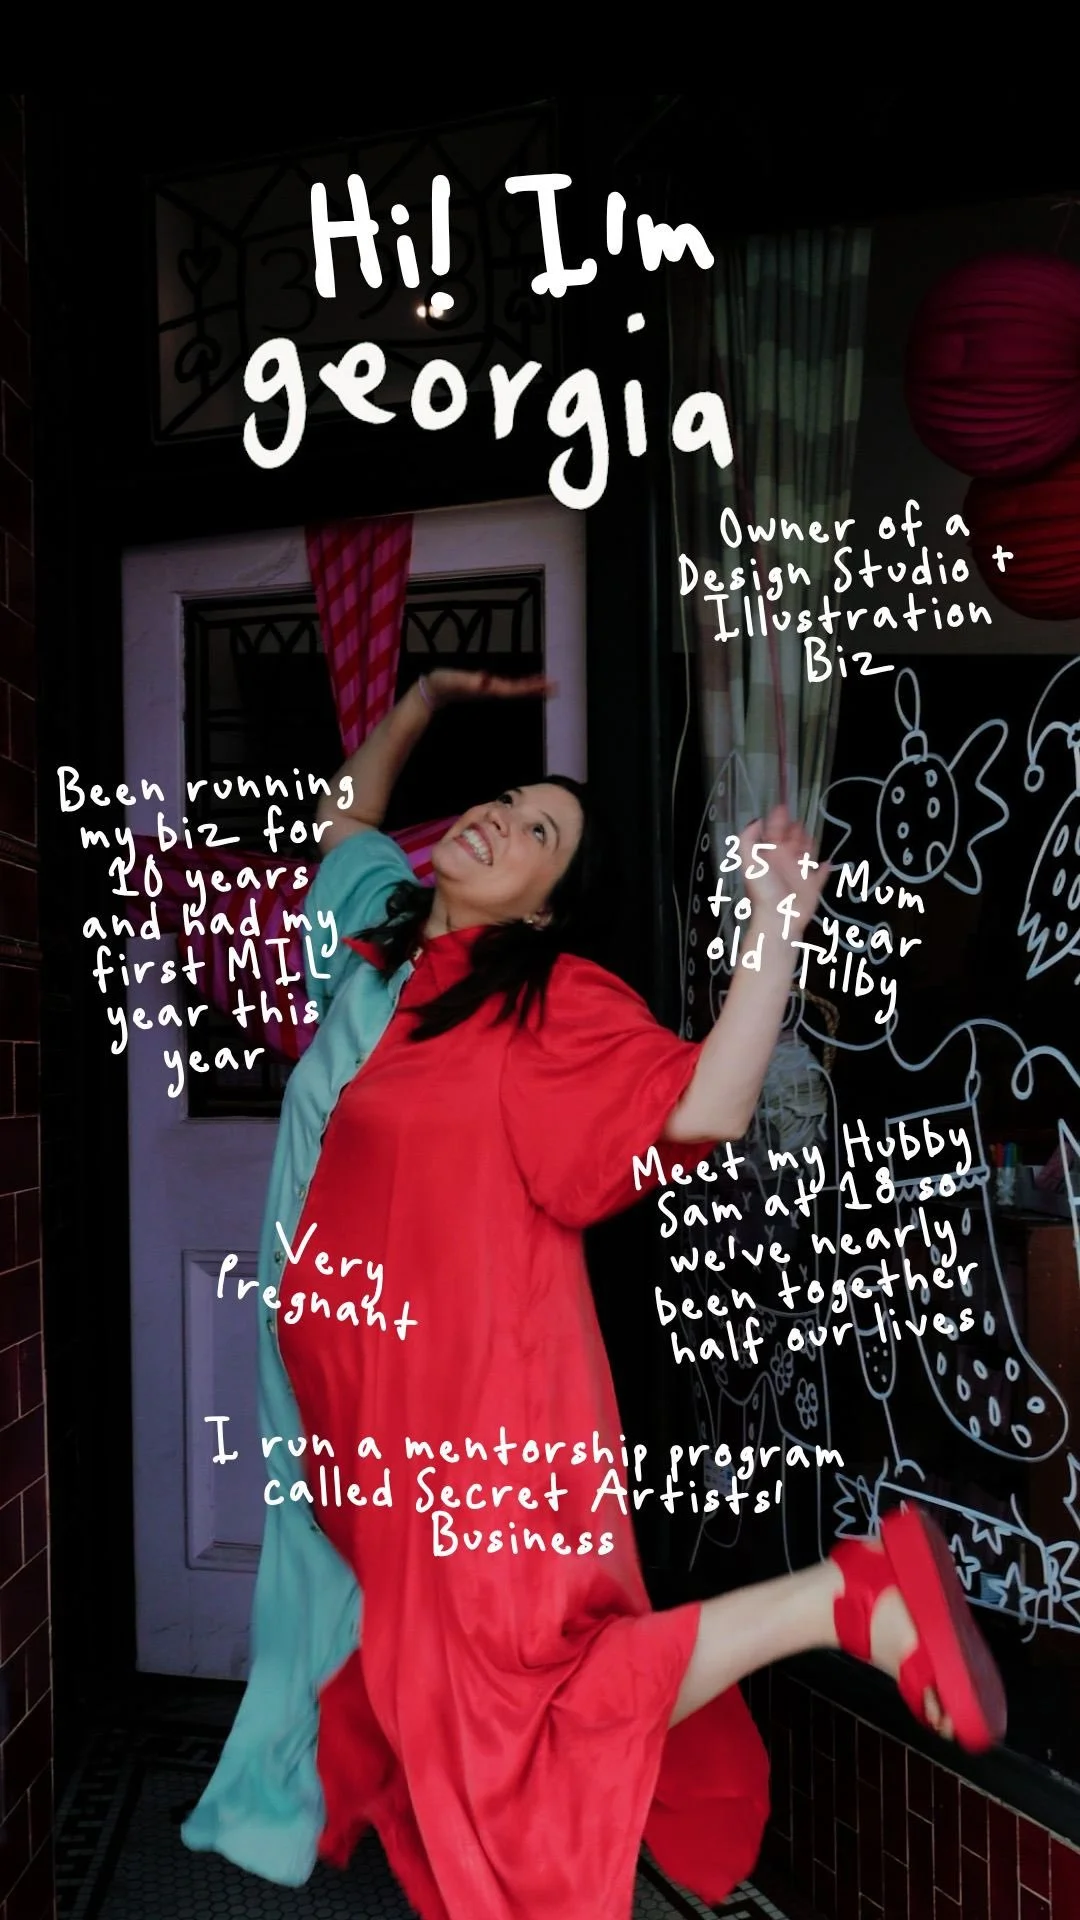 Hi! I'm
georgia
Owner of a
Design Studio +
Illustration
Biz
Been running
my biz for
10 years
and had my
first MIL
year this
year
35 + Mum
to 4 year
old Tilby
Meet my Hubby
Sam at 18 so
we've nearly
been together
half our lives
Very
Pregnant
I run a mentorship program
called Secret Artists'
Business